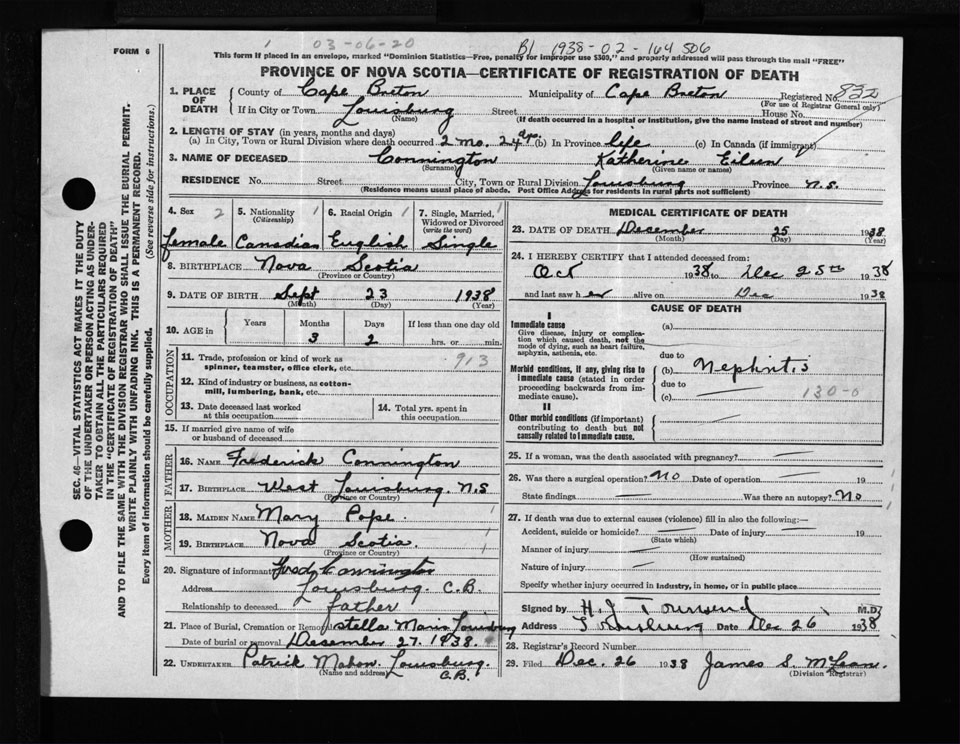 FORM 6
1 03-06-20 B1 1938-02-164506
This form if placed in an envelope, marked "Dominion Statistics—Free, penalty for improper use $300," and properly addressed will pass through the mail "FREE"
PROVINCE OF NOVA SCOTIA—CERTIFICATE OF REGISTRATION OF DEATH
1. PLACE OF DEATH
County of Cape Breton Municipality of Cape Breton Registered No. 832
(For use of Registrar General only)
If in City or Town Louisburg Street House No.
(Name) (If death occurred in a hospital or institution, give the name instead of street and number)
2. LENGTH OF STAY (in years, months and days)
(a) In City, Town or Rural Division where death occurred 2 mo. 24 dys. (b) In Province life (c) In Canada (if immigrant)
3. NAME OF DECEASED Connington Katherine Eileen
(Surname) (Given name or names)
RESIDENCE No. Street City, Town or Rural Division Louisburg Province N.S.
(Residence means usual place of abode. Post Office Address for residents in rural parts not sufficient)
4. Sex 2
female
5. Nationality 1
(Citizenship)
Canadian
6. Racial Origin 1
English
7. Single, Married, Widowed or Divorced 1
(write the word)
Single
8. BIRTHPLACE Nova Scotia
(Province or Country)
9. DATE OF BIRTH Sept 23 1938
(Month) (Day) (Year)
10. AGE in Years Months Days If less than one day old
3 2 hrs. or min.
OCCUPATION
11. Trade, profession or kind of work as 913
spinner, teamster, office clerk, etc.
12. Kind of industry or business, as cotton-
mill, lumbering, bank, etc.
13. Date deceased last worked
at this occupation
14. Total yrs. spent in
this occupation
15. If married give name of wife
or husband of deceased
FATHER
16. NAME Frederick Connington
17. BIRTHPLACE West Louisburg. N.S
(Province or Country)
MOTHER
18. MAIDEN NAME Mary Pope.
19. BIRTHPLACE Nova Scotia.
(Province or Country)
20. Signature of informant Fred Connington
Address Louisburg. C.B.
Relationship to deceased father
21. Place of Burial, Cremation or Removal Stella Maris Louisburg
Date of burial or removal December 27. 1938.
22. UNDERTAKER Patrick Mahon. Louisburg.
(Name and address) C.B.
MEDICAL CERTIFICATE OF DEATH
23. DATE OF DEATH December 25 1938
(Month) (Day) (Year)
24. I HEREBY CERTIFY that I attended deceased from:
Oct 1938 to Dec 25th 1938
and last saw her alive on Dec 1938
CAUSE OF DEATH
I
Immediate cause (a)
Give disease, injury or complica-
tion which caused death, not the
mode of dying, such as heart failure,
asphyxia, asthenia, etc.
due to
Morbid conditions, if any, giving rise to (b) Nephritis
immediate cause (stated in order due to
proceeding backwards from im- (c) 130-0
mediate cause).
II
Other morbid conditions (if important)
contributing to death but not
causally related to immediate cause.
25. If a woman, was the death associated with pregnancy?
26. Was there a surgical operation? No Date of operation 19
State findings Was there an autopsy? No
27. If death was due to external causes (violence) fill in also the following:—
Accident, suicide or homicide? Date of injury 19
(State which)
Manner of injury
(How sustained)
Nature of injury
Specify whether injury occurred in industry, in home, or in public place
Signed by H. J Townsend M.D.
Address Louisburg Date Dec 26 1938
28. Registrar's Record Number
29. Filed Dec. 26 1938 James S. McLean.
(Division Registrar)
SEC. 46—VITAL STATISTICS ACT MAKES IT THE DUTY
OF THE UNDERTAKER OR PERSON ACTING AS UNDER-
TAKER TO OBTAIN ALL THE PARTICULARS REQUIRED
IN THE "CERTIFICATE OF REGISTRATION OF DEATH"
AND TO FILE THE SAME WITH THE DIVISION REGISTRAR WHO SHALL ISSUE THE BURIAL PERMIT.
WRITE PLAINLY WITH UNFADING INK. THIS IS A PERMANENT RECORD.
Every item of information should be carefully supplied. (See reverse side for instructions.)